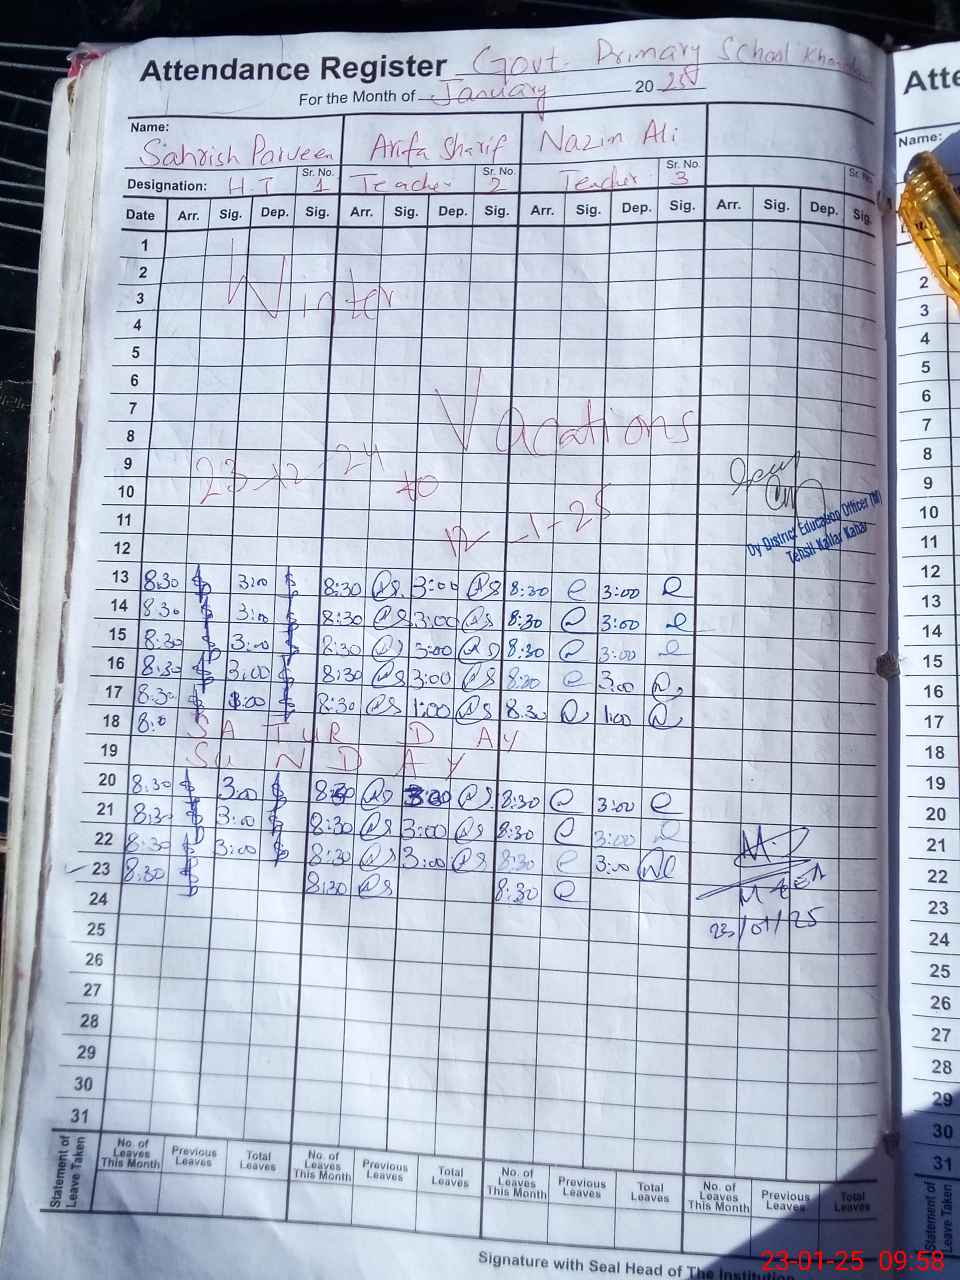 Attendance Register Govt. Primary School
For the Month of January 2025
Name: Sahrish Parveen Arifa Sharif Nazim Ali
Designation: H.T Sr. No. 1 Teacher Sr. No. 2 Teacher Sr. No. 3 Sr. No.
Date Arr. Sig. Dep. Sig. Arr. Sig. Dep. Sig. Arr. Sig. Dep. Sig. Arr. Sig. Dep. Sig.
1
2
3 Winter
4
5
6
7
8 Vacations
9
10 23-12-24 to
11 12-1-25
12
Dy District Education Officer (M)
Tehsil Kallar Kahar
13 8:30 3:00 8:30 3:00 8:30 3:00
14 8:30 3:00 8:30 3:00 8:30 3:00
15 8:30 3:00 8:30 3:00 8:30 3:00
16 8:30 3:00 8:30 3:00 8:30 3:00
17 8:30 1:00 8:30 1:00 8:30 1:00
18 SATURDAY
19 SUNDAY
20 8:30 3:00 8:30 3:00 8:30 3:00
21 8:30 3:00 8:30 3:00 8:30 3:00
22 8:30 3:00 8:30 3:00 8:30 3:00
23 8:30 8:30 8:30
24
23/01/25
25
26
27
28
29
30
31
Statement of Leave Taken
No. of Leaves This Month Previous Leaves Total Leaves No. of Leaves This Month Previous Leaves Total Leaves No. of Leaves This Month Previous Leaves Total Leaves No. of Leaves This Month Previous Leaves Total Leaves
Signature with Seal Head of The Institution
Atte
Name:
2
3
4
5
6
7
8
9
10
11
12
13
14
15
16
17
18
19
20
21
22
23
24
25
26
27
28
29
30
31
Statement of Leave Taken
23-01-25 09:58